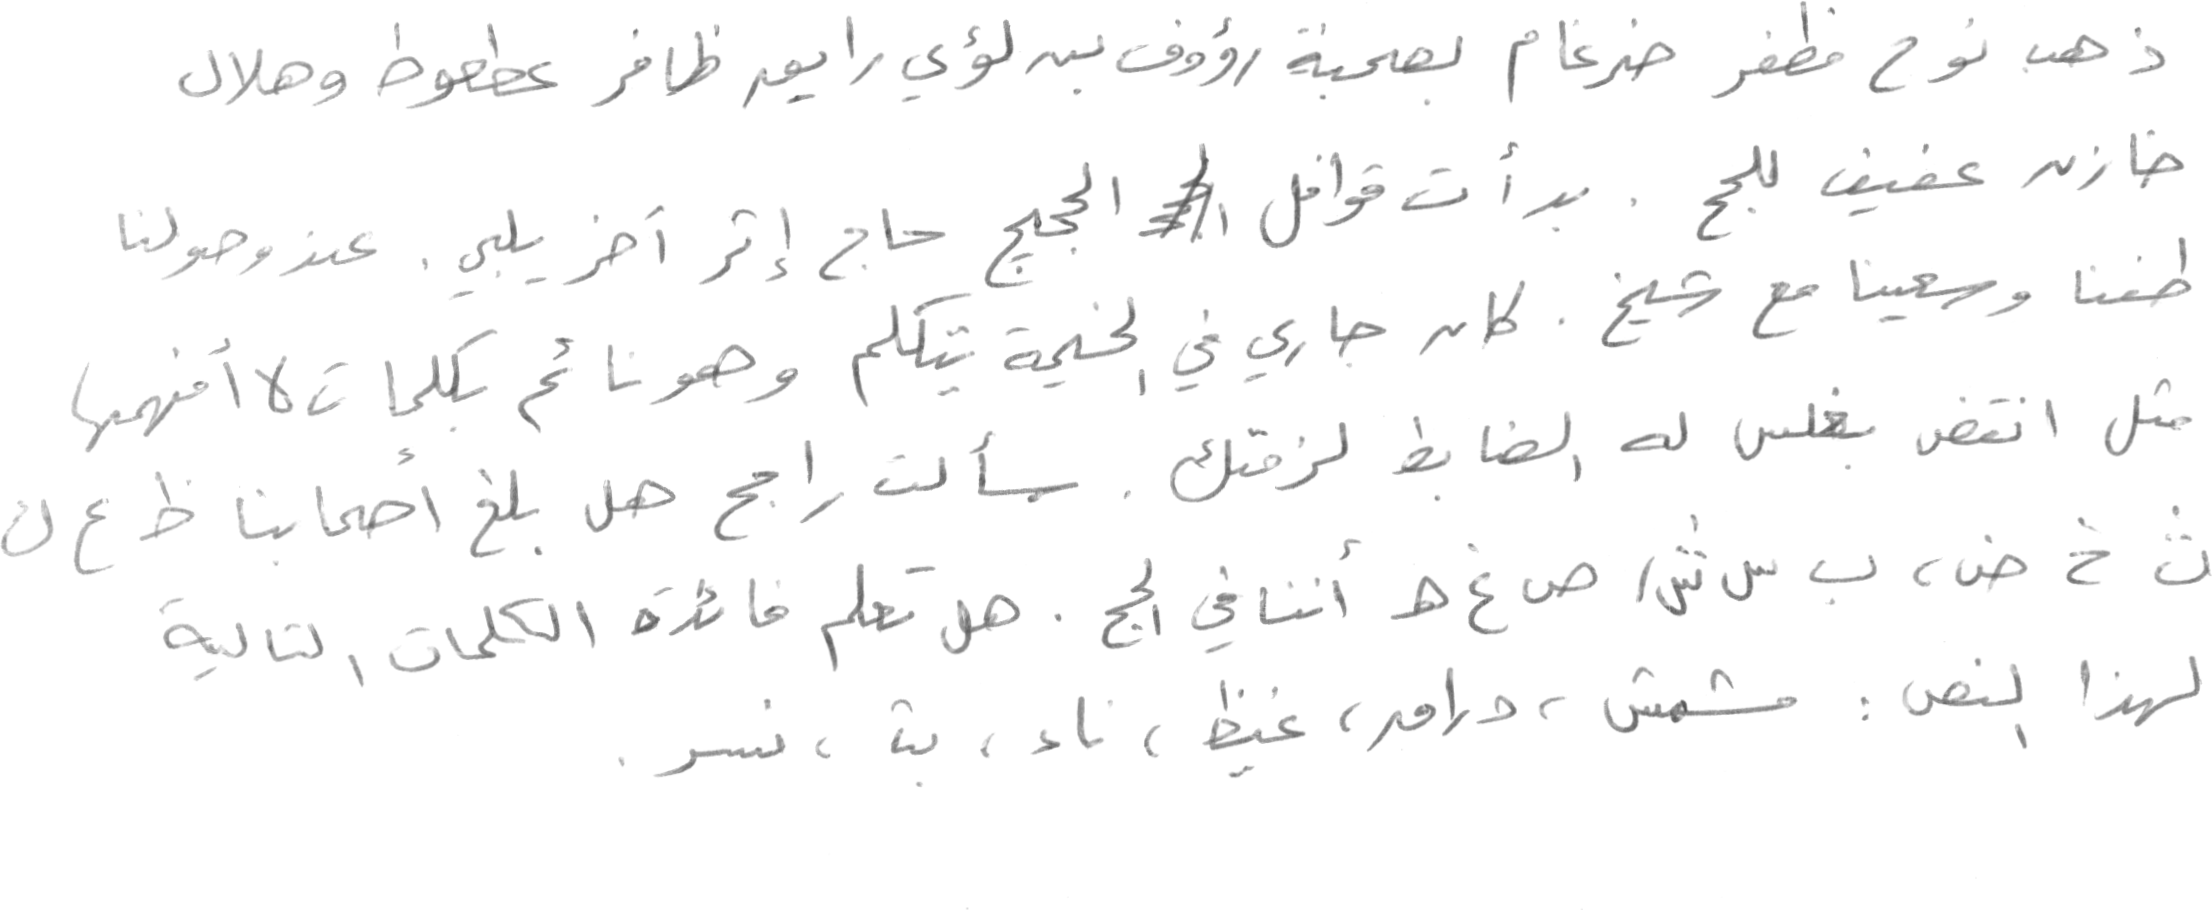 ذهب نوح مظفر ضرغام بصحبة رؤوف بن لؤي رايق ظافر عطعوط وهلال
خازن عفيف للحج . بدأت قوافل الحجيج حاج إثر آخر يلبي . عند وصولنا
طفنا وسعينا مع شيخ . كان جاري في الخيمة يتكلم وهو نائم بكلمات لا أفهمها
مثل انتفض بغلس له الضابط لزقتك . سألت راجح هل بلغ أصحابنا ظ ع ن
ث خ ض ، ب س ش ، ص غ ط أننا في الحج . هل تعلم فائدة الكلمات التالية
لهذا النص : مشمش ، دراق ، غيظ ، ناء ، بث ، نسر .